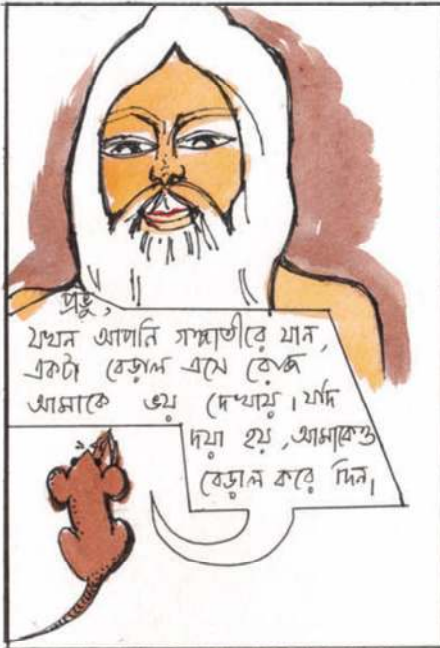 প্রভু,
যখন আপনি গঙ্গাতীরে যান,
একটা বেড়াল এসে রোজ
আমাকে ভয় দেখায়। যদি
দয়া হয়, আমাকেও
বেড়াল করে দিন।